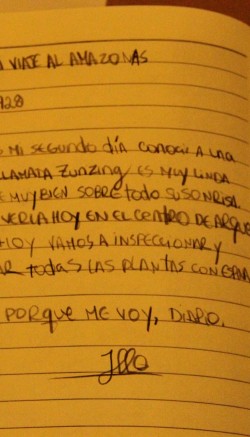 VIAJE AL AMAZONAS
928
MI SEGUNDO DÍA CONOCI A UNA
LLAMADA ZUNZING, ES MUY LINDA
MUY BIEN SOBRE TODO SU SONRISA.
VERLA HOY EN EL CENTRO DE ARQUE
HOY VAMOS A INSPECCIONAR Y
AR TODAS LAS PLANTAS CON ESPA
PORQUE ME VOY, DIARIO.